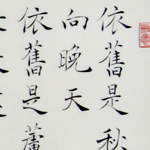 依舊是秋
向晚天
依舊是